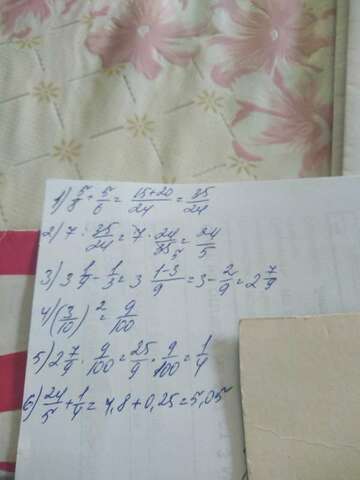 1) 5/8 + 5/6 = (15+20)/24 = 35/24
2) 7 : 35/24 = 7 · 24/35 5 = 24/5
3) 3 1/9 - 1/3 = 3 (1-3)/9 = 3 - 2/9 = 2 7/9
4) (3/10)² = 9/100
5) 2 7/9 · 9/100 = 25/9 · 9/100 = 1/4
6) 24/5 + 1/4 = 4,8 + 0,25 = 5,05